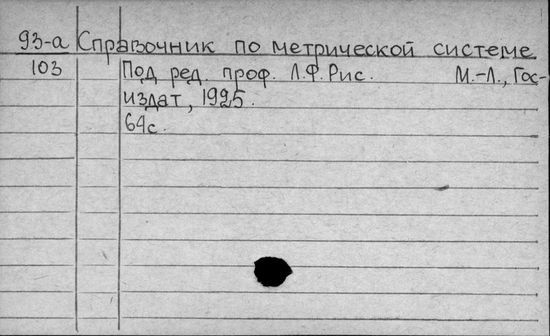 93-а Справочник по метрической системе
103 Под ред. проф. Л.Ф. Рис. М.-Л., Гос-
издат, 1925.
64с.